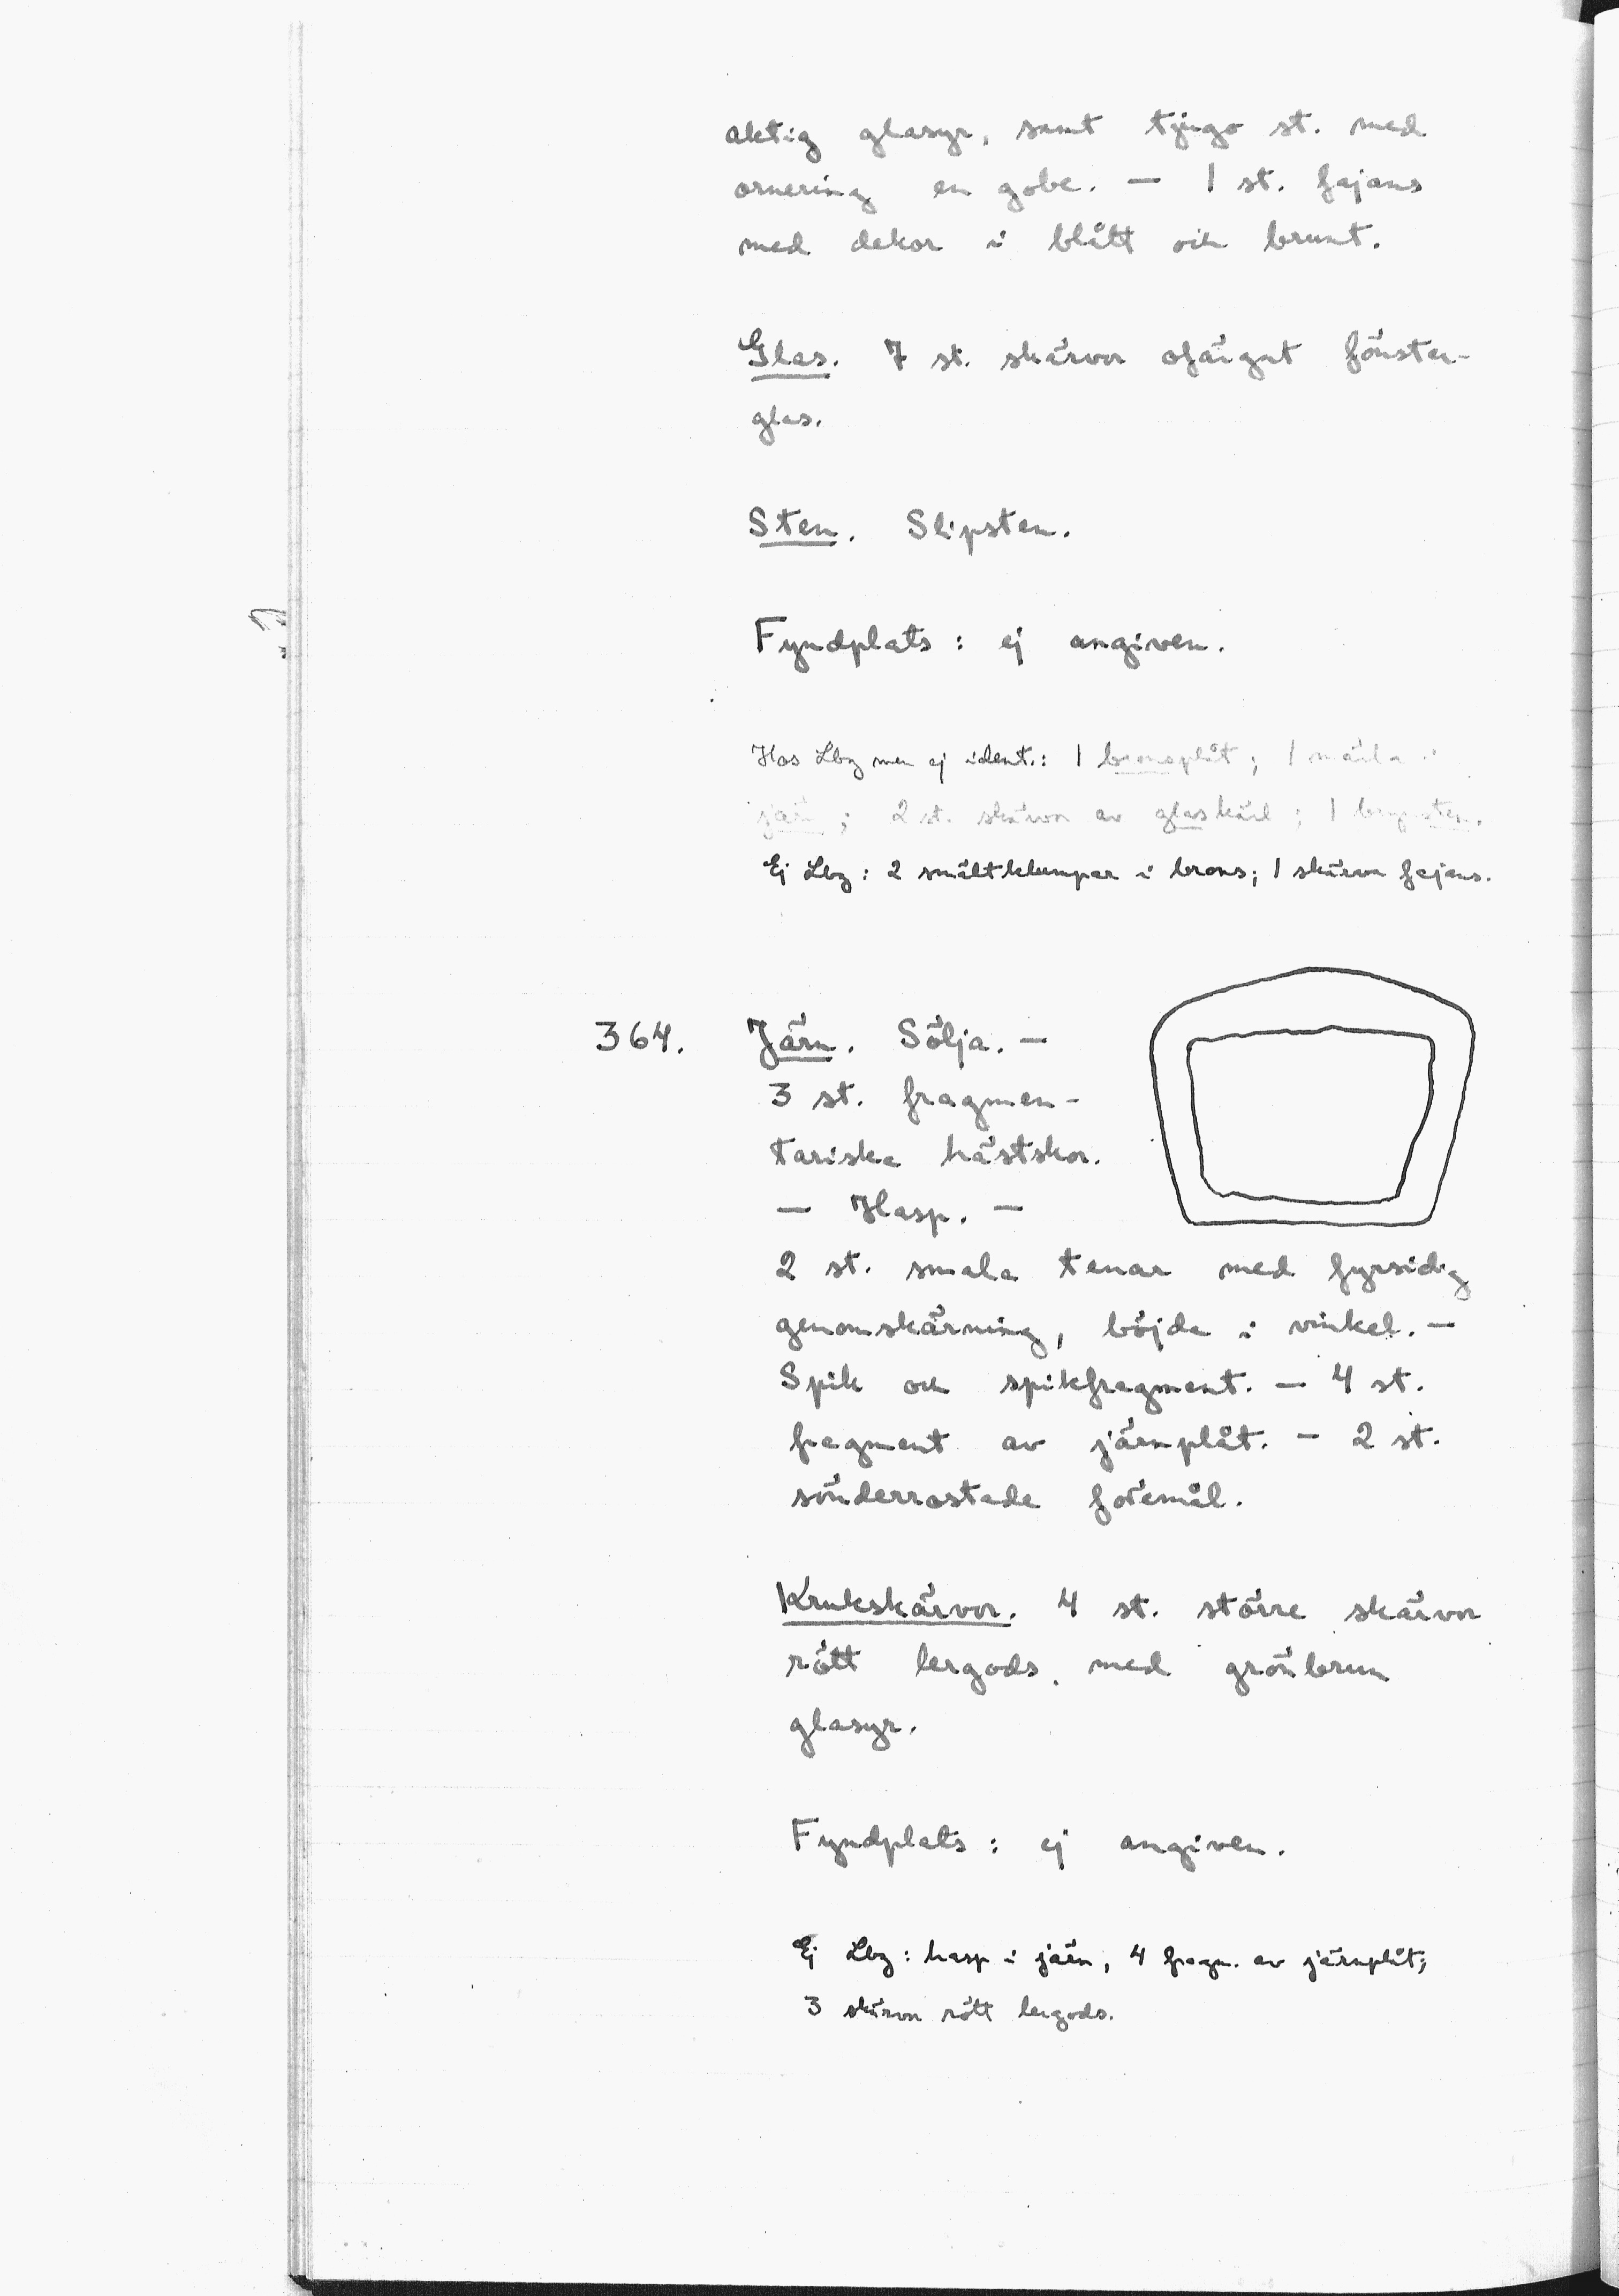 aktig glasyr, samt tjugo st. med
ornering en gobe. — 1 st. fajans
med dekor i blått och brunt.
Glas. 7 st. skärvor ofärgat fönster-
glas.
Sten. Slipsten.
Fyndplats: ej angiven.
Hos Lbg men ej ident.: 1 bronsplåt; 1 märla i
järn; 2 st. skärvor av glaskärl; 1 brynsten.
Ej Lbg: 2 smältklumpar i brons; 1 skärva fajans.
364. Järn. Sölja. —
3 st. fragmen-
tariska hästskor.
— Hasp. —
2 st. smala tenar med fyrsidig
genomskärning, böjda i vinkel. —
Spik och spikfragment. — 4 st.
fragment av järnplåt. — 2 st.
sönderrostade föremål.
Krukskärvor. 4 st. större skärvor
rött lergods. med grönbrun
glasyr.
Fyndplats: ej angiven.
Ej Lbg: hasp i järn, 4 fragm. av järnplåt;
3 skärvor rött lergods.